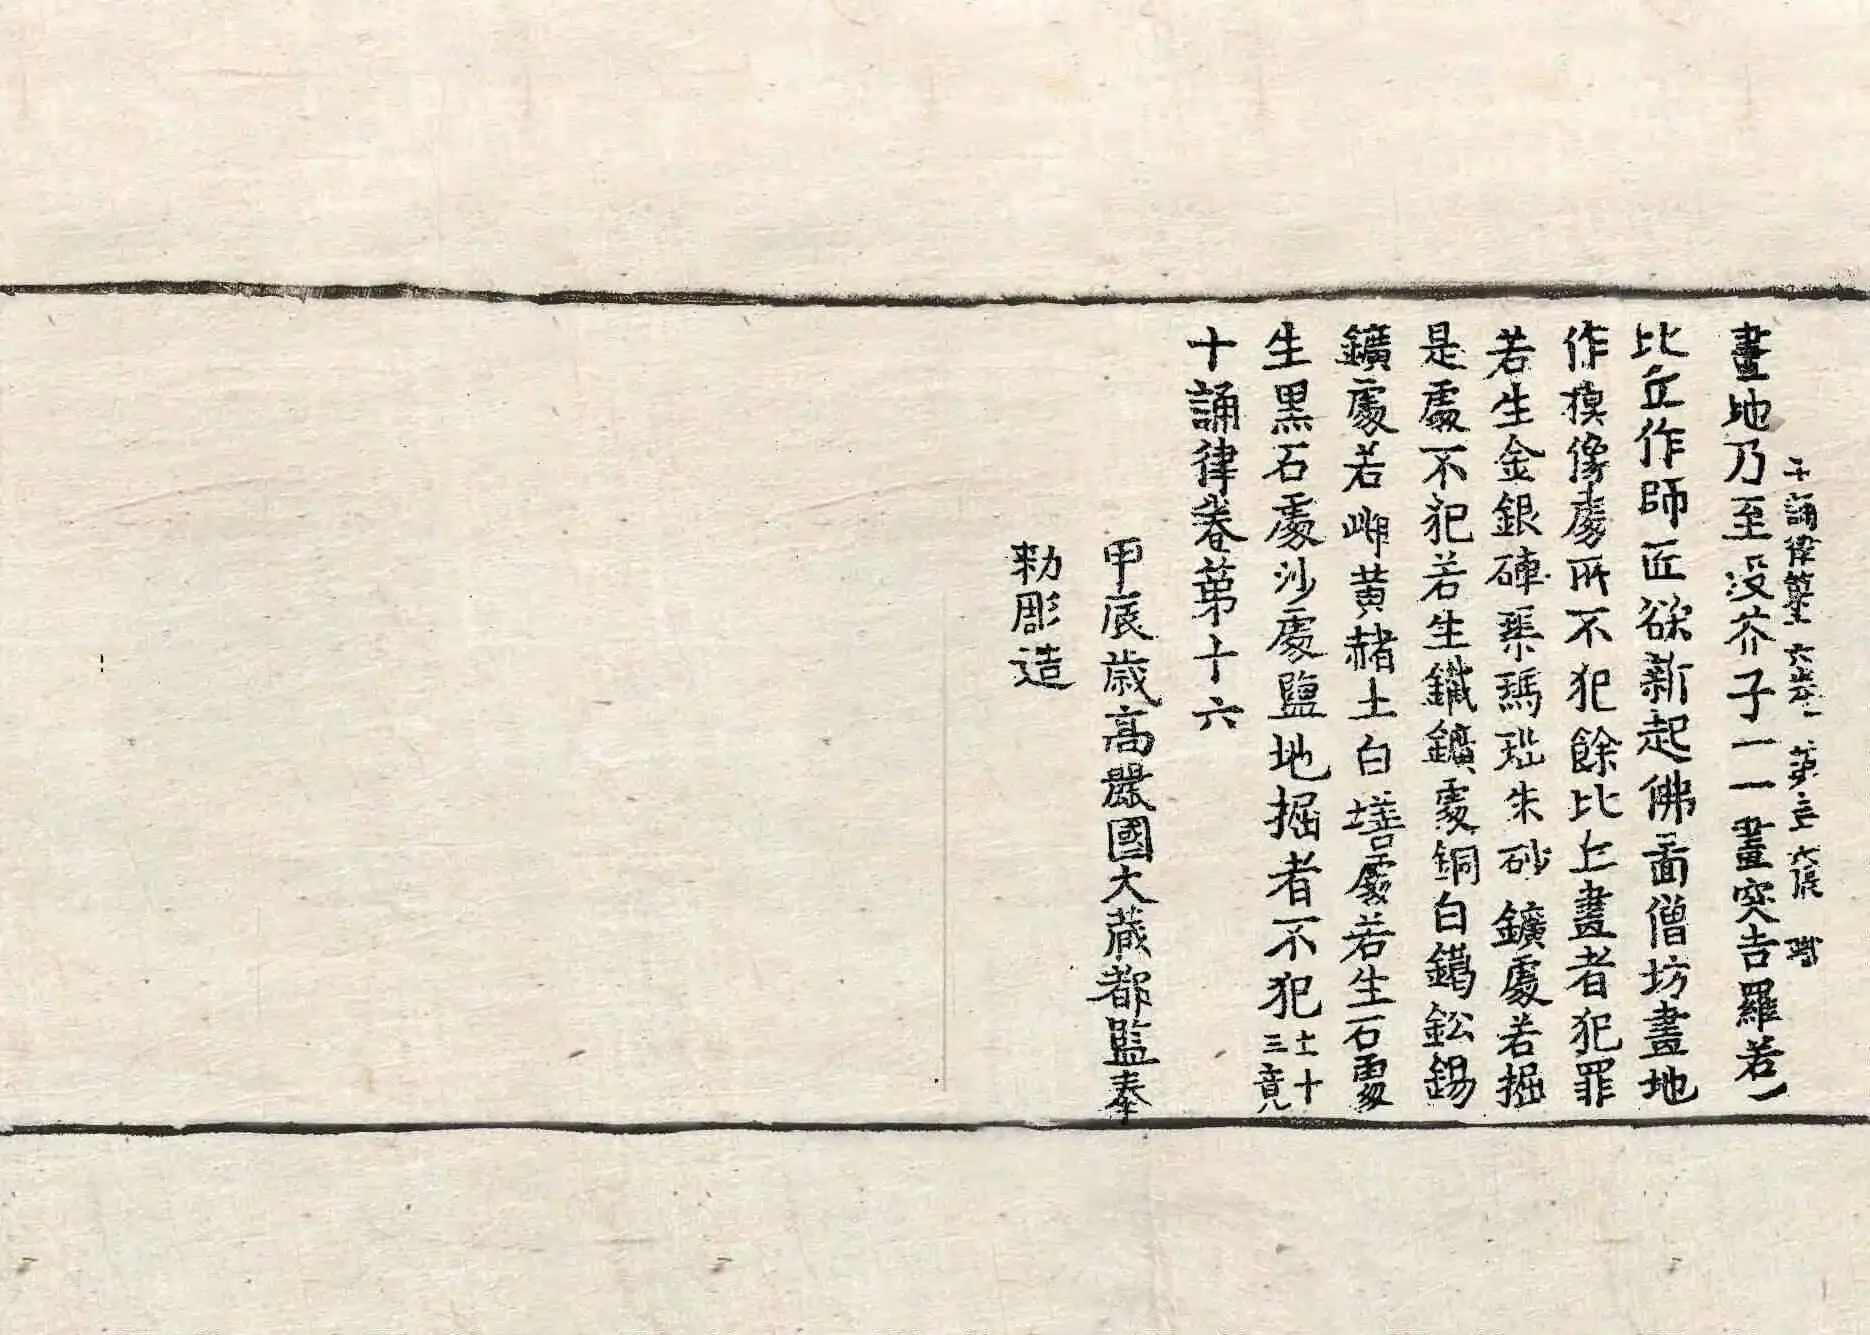 十誦律第十六卷 第三六張 攝
畫地乃至没芥子一一畫突吉羅若
比丘作師匠欲新起佛啚僧坊畫地
作摸像處所不犯餘比丘畫者犯罪
若生金銀硨磲瑪瑙朱砂鑛處若掘
是處不犯若生鐵鑛處銅白鑞鈆錫
鑛處若雌黃赭土白墡處若生石處
生黑石處沙處鹽地掘者不犯 七十三竟
十誦律卷第十六
甲辰歲高麗國大藏都監奉
勅彫造